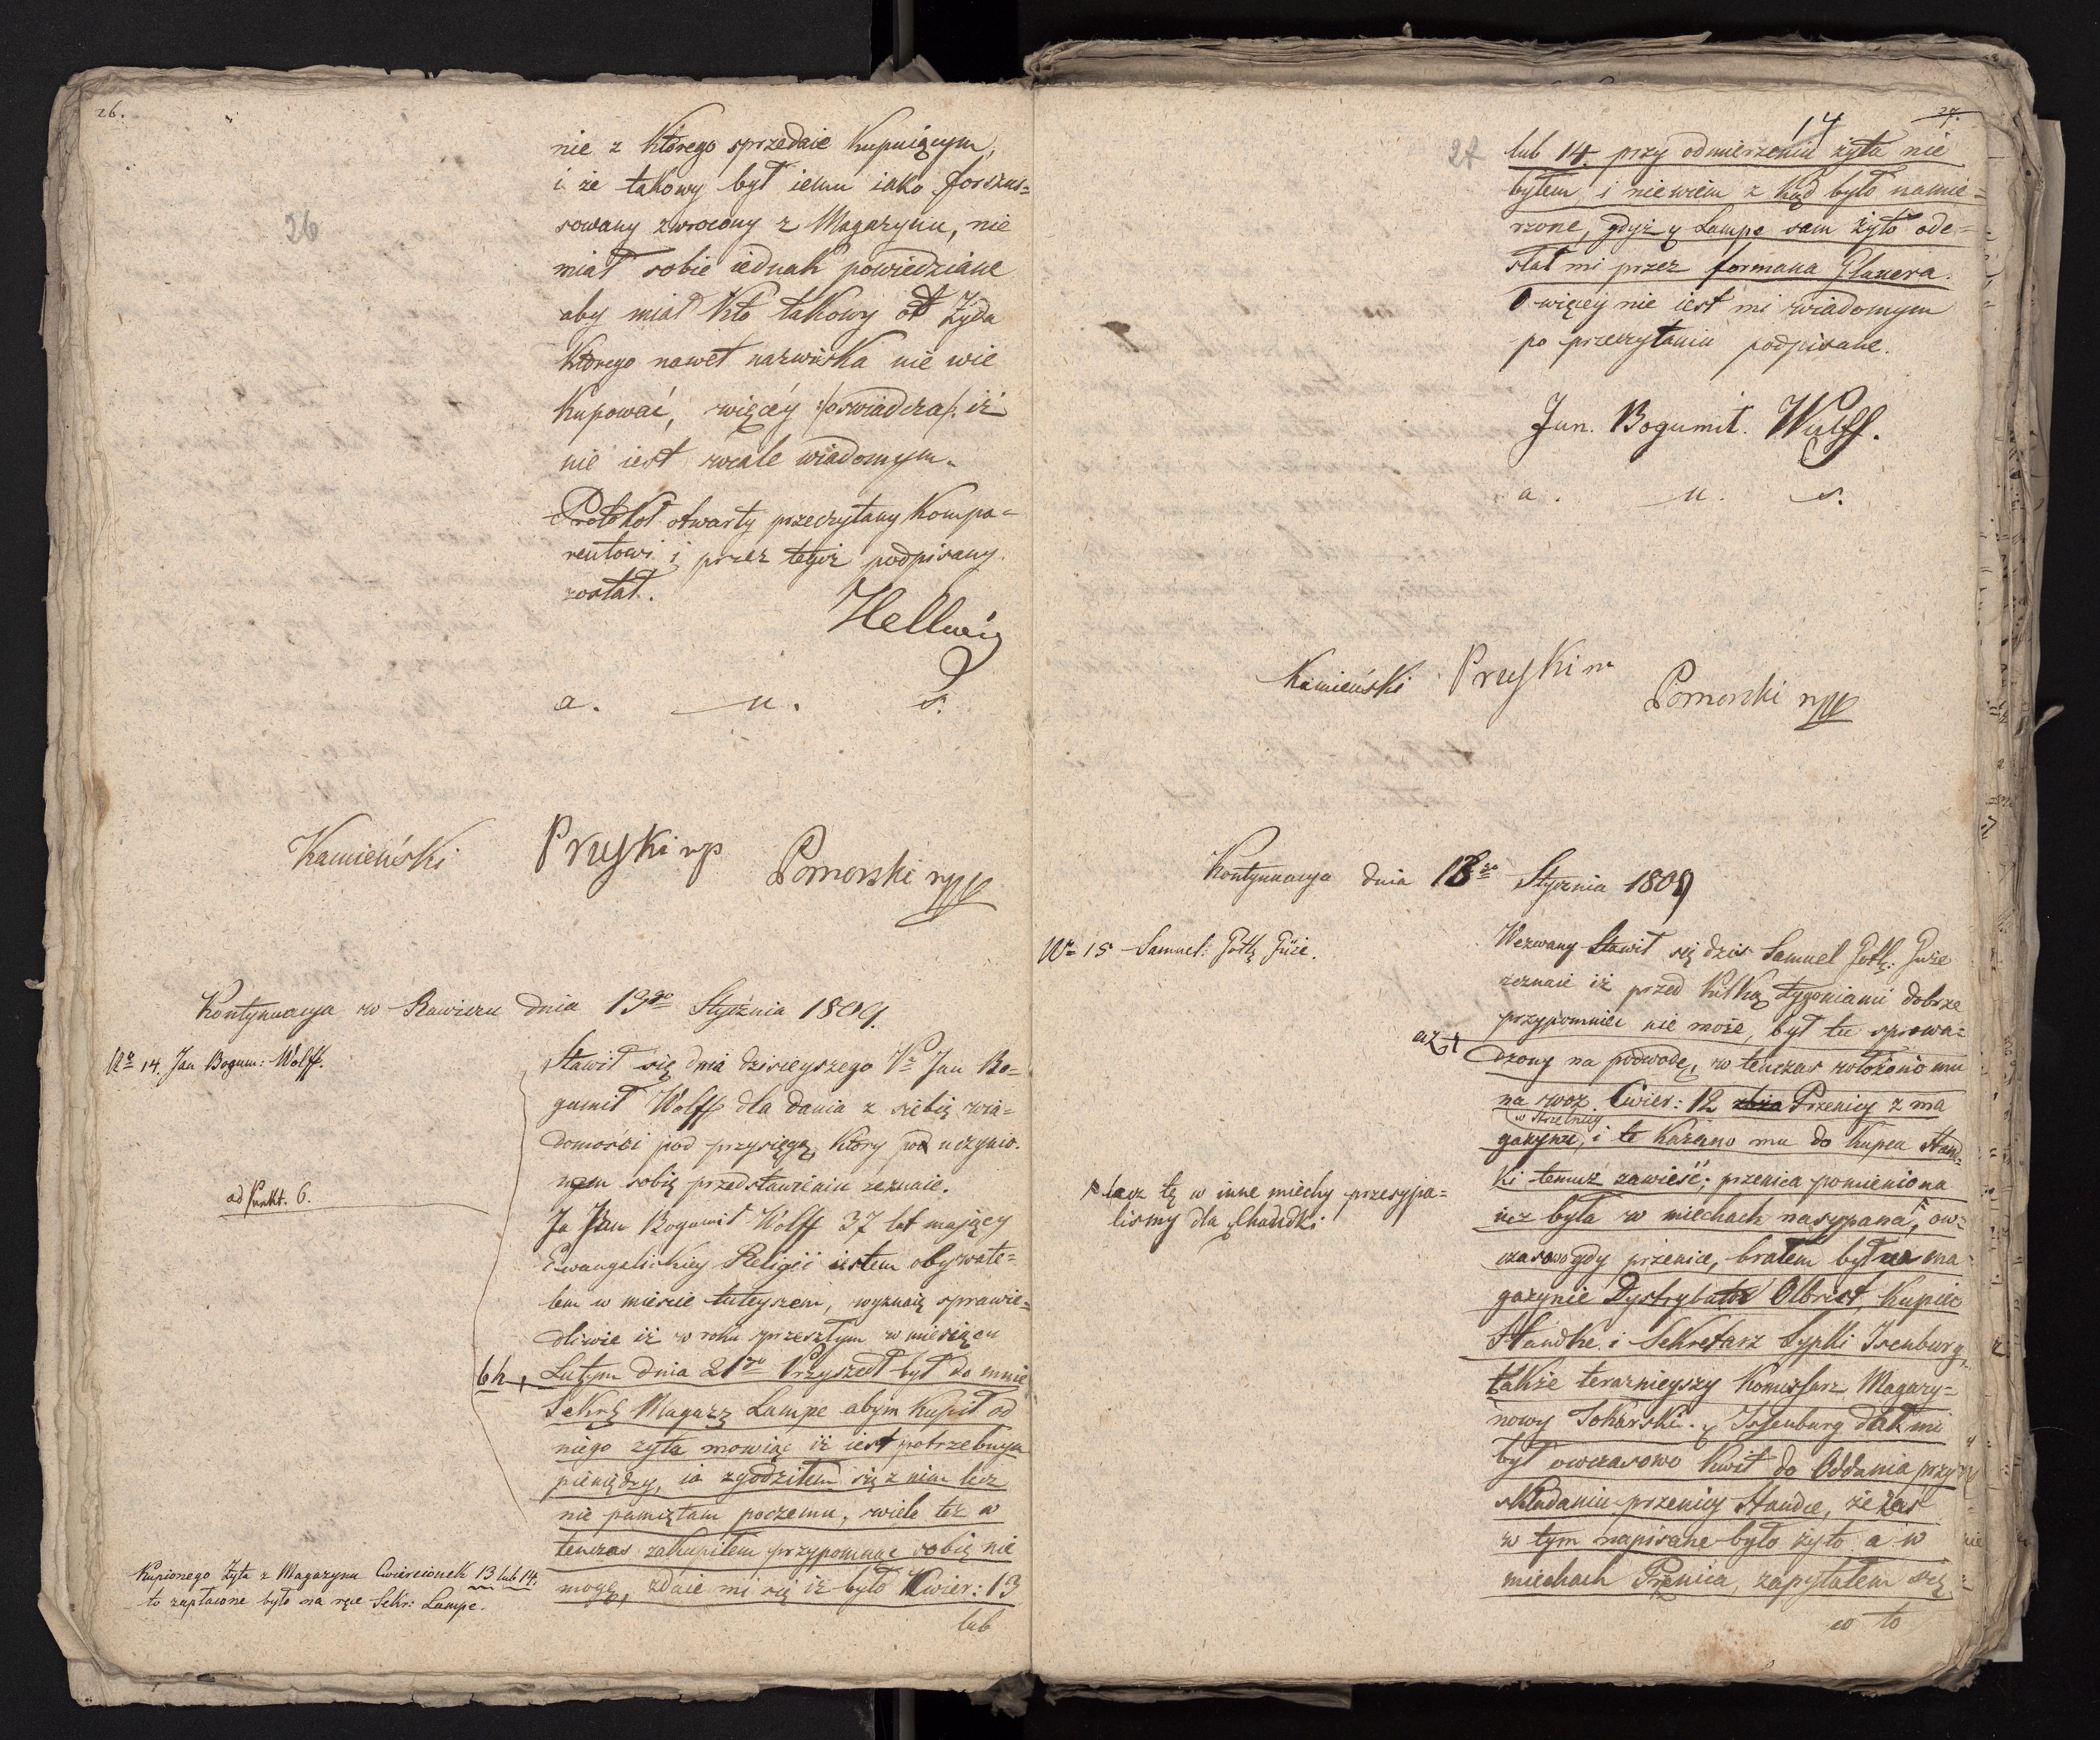 26.
26
nie z którego sprzedaie kupuiącym,
i że takowy był iemu iako forszus=
sowany zwrocony z Magazynu, nie
miał sobie iednak powiedziane
aby miał kto takowy od Żyda
którego nawet nazwiska nie wie
kupować, więcey /:oswiadcza:/ iż
nie iest wcale wiadomym.
Protokoł otwarty przeczytany kompa=
rentowi i przez tegoż podpisany
został.
Hellwig
a. u. s.
Kamieński Pruski mp Pomorski mpp
Kontynuacya w Rawiczu dnia 13go Stycznia 1809.
Nro 14. Jan Bogum: Wolff.
Stawił się dnia dzisieyszego Jan Bo=
gumił Wolff dla dania z siebię wia=
domości pod przysięgą, który po uczynio=
nym sobię przedstawieniu zeznaie.
ad Punkt. 6.
Ja Jan Bogumił Wolff 37 lat maiący
Ewangelickiey Religii iestem obywate=
lem w mieście tuteyszem, wyznaię sprawie=
dliwie iż w roku przeszłym w miesiącu
bh, Lutym dnia 21go Przyszedł był do mnie
Sekrę Magazę Lampe abym kupił od
niego żyta mowiąc iż iest potrzebnym
pieniędzy, ia zgodziłem się z nim lecz
nie pamiętam poczemu, wiele też w
tenczas zakupiłem przypomnąć sobię nie
mogę, zdaie mi się iż było Cwier: 13
lub
Kupionego Żyta z Magazynu Cwierciontek 13 lub 14.
to zapłacone było na ręce Sekr: Lampe.
27.
14
27
lub 14. przy odmierzeniu żyta nie
byłem, i niewiem z kąd było namie=
rzone, gdyż y Lampe sam żyto ode=
słał mi przez formana Glauera.
O więcey nie iest mi wiadomym
po przeczytaniu podpisane.
Jan. Bogumił. Wulff.
a. u. s.
Kamieński Pruski m Pomorski mpp
Kontynuacya dnia 18go Stycznia 1809
Nro 15 Samuel: Gotlę Güże.
Wezwany Stawił się dzis Samuel Gotl: Guże
zeznaie iż przed kilką tygoniami dobrze
przypomniec nie może, był tu sprowa=
dzony na podwodę, w tenczas włożono mu
na woz Cwier: 12 Przenicy z ma
w Strzelnicy
gazynu, i te kazano mu do kupca Stand=
ki temuż zawieść; przenica pomieniona
iuż była w miechach nasypana, ow=
lecz tę w inne miechy przesypa=
lismy dla
czasowo gdy przenice, brałem był na ma
gazynie Dystrybutor Olbrist, kupiec
Standke i Sekretarz Sypki Isenburg,
także teraznieyszy Komissarz Magazy=
nowy Sokarski. y Issenburg dał mi
był owczasowo kwit do Oddania przy
składaniu przenicy Standce, że zaś
w tym napisane było żyto a w
miechach Przenica, zapytałem się
co to